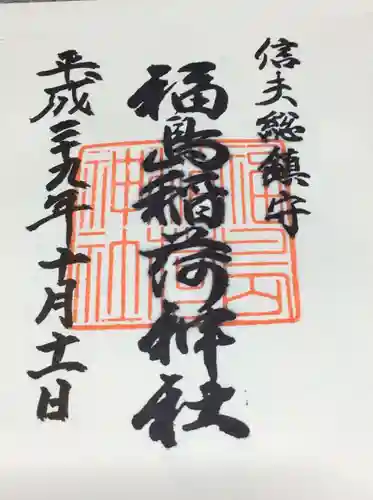 信夫総鎮守
福島稲荷神社
平成二十九年十月十一日